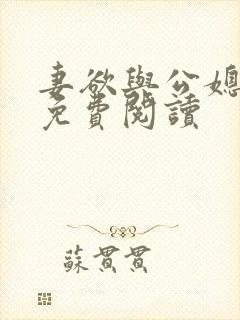 妻欲與公媳
免費閱讀
蘇貫貫